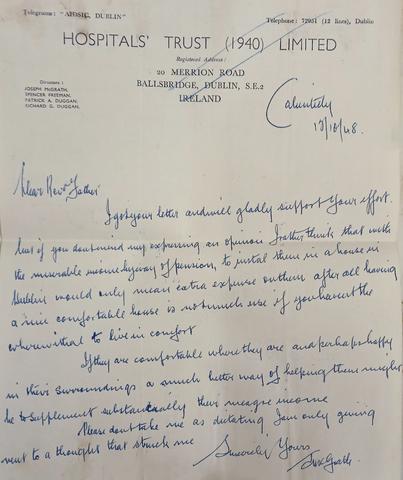 Telegrams: "AIOSIC, DUBLIN"
Telephone: 72951 (12 lines), Dublin
HOSPITALS' TRUST (1940) LIMITED
Registered Address:
20 MERRION ROAD
BALLSBRIDGE, DUBLIN, S.E.2
IRELAND
Directors:
JOSEPH McGRATH,
SPENCER FREEMAN,
PATRICK A. DUGGAN,
RICHARD G. DUGGAN.
Cabinteely
13/10/48.
Dear Revd Father
I got your letter and will gladly support your effort.
but if you dont mind my expressing an opinion I rather think that with
the miserable income by way of pension, to instal them in a house in
Dublin would only mean extra expense on them after all having
a nice comfortable house is not much use if you havent the
wherewithal to live in comfort
If they are comfortable where they are and perhaps happy
in their surroundings a much better way of helping them might
be to supplement substantially their meagre income
Please dont take me as dictating I am only giving
vent to a thought that struck me
Sincerely Yours
Joe McGrath